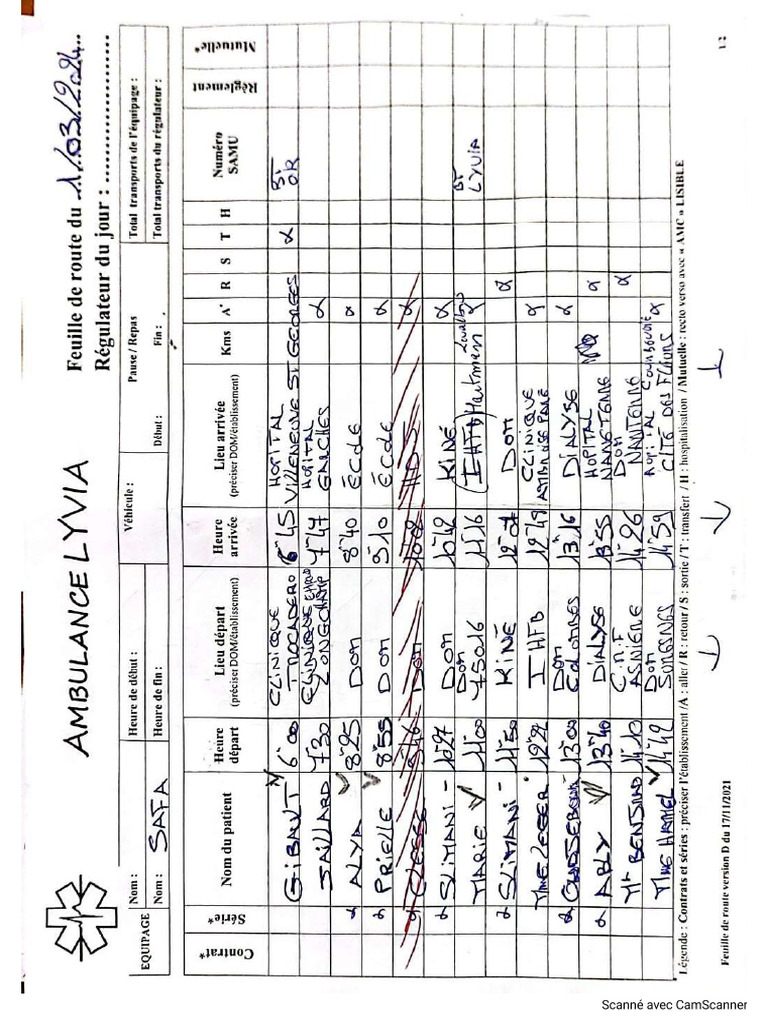 AMBULANCE LYVIA
Feuille de route du 1/03/2024
Régulateur du jour :
EQUIPAGE
Nom :
Nom : SAFA
Heure de début :
Heure de fin :
Véhicule :
Pause / Repas
Début :
Fin :
Total transports de l'équipage :
Total transports du régulateur :
Contrat* Série* Nom du patient Heure départ Lieu départ (préciser DOM/établissement) Heure arrivée Lieu arrivée (préciser DOM/établissement) Kms A* R S T H Numéro SAMU Règlement Mutuelle*
GIBAULT 6 00 CLINIQUE TROCADERO 6 45 HOPITAL VILLENEUVE ST GEORGES BT OR
JAILLARD 7 30 CLINIQUE LONGCHAMP 7 47 HOPITAL GARCHES
ALYA 8 25 DOM 8 40 ÉCOLE
PRIELLE 8 55 DOM 9 10 ÉCOLE
DOM
SLIMANI 10 27 DOM 10 42 KINÉ
MARIE 11 00 DOM 75016 11 16 IHFB Hartmann BT LYVIA
SLIMANI 11 50 KINÉ DOM
Mme LEGER 12 27 IHFB 12 49 CLINIQUE AMBROISE PARÉ
13 00 DOM COLOMBES 13 16 DIALYSE
ABLY 13 40 DIALYSE 13 55 HOPITAL NANTERRE
Mr 14 10 C.M.F ASNIERE 14 26 DOM NANTERRE
Mme HAMEL 14 42 DOM 14 59 HOPITAL COURBEVOIE CITÉ DES FLEURS
Légende : Contrats et séries : préciser l'établissement /A : aller / R : retour / S : sortie / T : transfert / H : hospitalisation / Mutuelle : recto verso avec « AMC » LISIBLE
Feuille de route version D du 17/11/2021
1/2
Scanné avec CamScanner